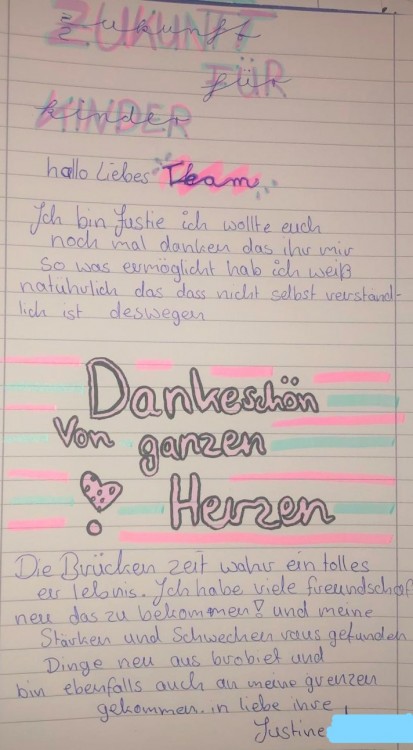 ZUKUNFT
Zukunft
FÜR
für
KINDER
kinder
hallo Liebes Team
Ich bin Justie ich wollte euch
noch mal danken das ihr mir
so was ermöglicht hab ich weiß
natuhrlich das dass nicht selbst verständ-
lich ist deswegen
Dankeschön
Von ganzen
Herzen
Die Brücken zeit wahr ein tolles
er lebnis. Ich habe viele freundschaf
neu das zu bekommen! und meine
Stärken und Schwechen raus gefunden
Dinge neu aus brobiet und
bin ebenfalls auch an meine grenzen
gekommen. in liebe ihre,
Justine